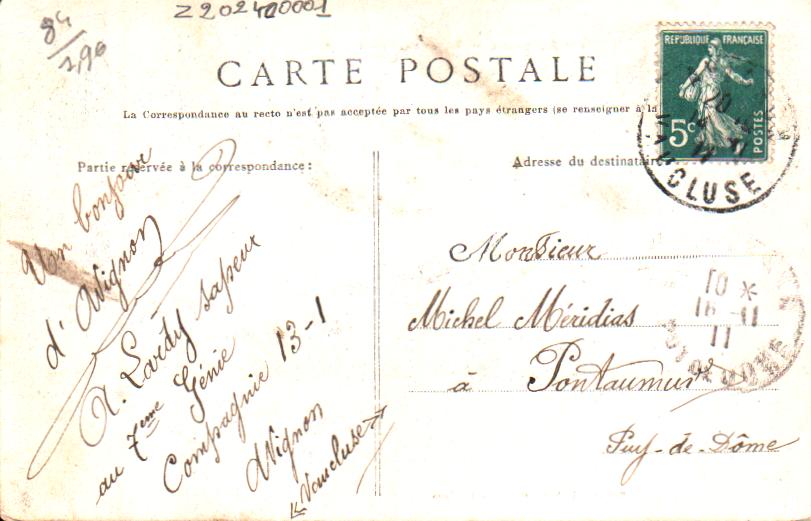 Z202400001
84
2,90
CARTE POSTALE
La Correspondance au recto n'est pas acceptée par tous les pays étrangers (se renseigner à la
Partie réservée à la correspondance:
Adresse du destinataire
REPUBLIQUE FRANÇAISE
5c
POSTES
VAUCLUSE
Un bonjour
d'Avignon
A. Lardy sapeur
au 7eme Génie
Compagnie 13-1
Avignon
Vaucluse
Monsieur
Michel Méridias
à Pontaumur
Puy-de-Dôme
10 *
11
PUY DE DOME